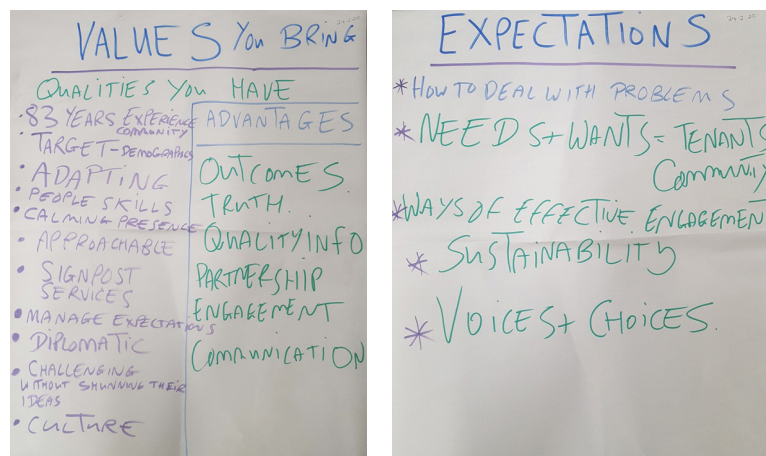 VALUES YOU BRING
QUALITIES YOU HAVE
• 83 YEARS EXPERIENCE
COMMUNITY
• TARGET - DEMOGRAPHICS
• ADAPTING
• PEOPLE SKILLS
• CALMING PRESENCE
• APPROACHABLE
• SIGNPOST
SERVICES
• MANAGE EXPECTATIONS
• DIPLOMATIC
• CHALLENGING
WITHOUT SHUNNING THEIR
IDEAS
• CULTURE
ADVANTAGES
OUTCOMES.
TRUTH.
QUALITY INFO
PARTNERSHIP
ENGAGEMENT
COMMUNICATION
EXPECTATIONS
* HOW TO DEAL WITH PROBLEMS
* NEEDS + WANTS = TENANTS
Community
* WAYS OF EFFECTIVE ENGAGEMENT
* SUSTAINABILITY
* VOICES + CHOICES.